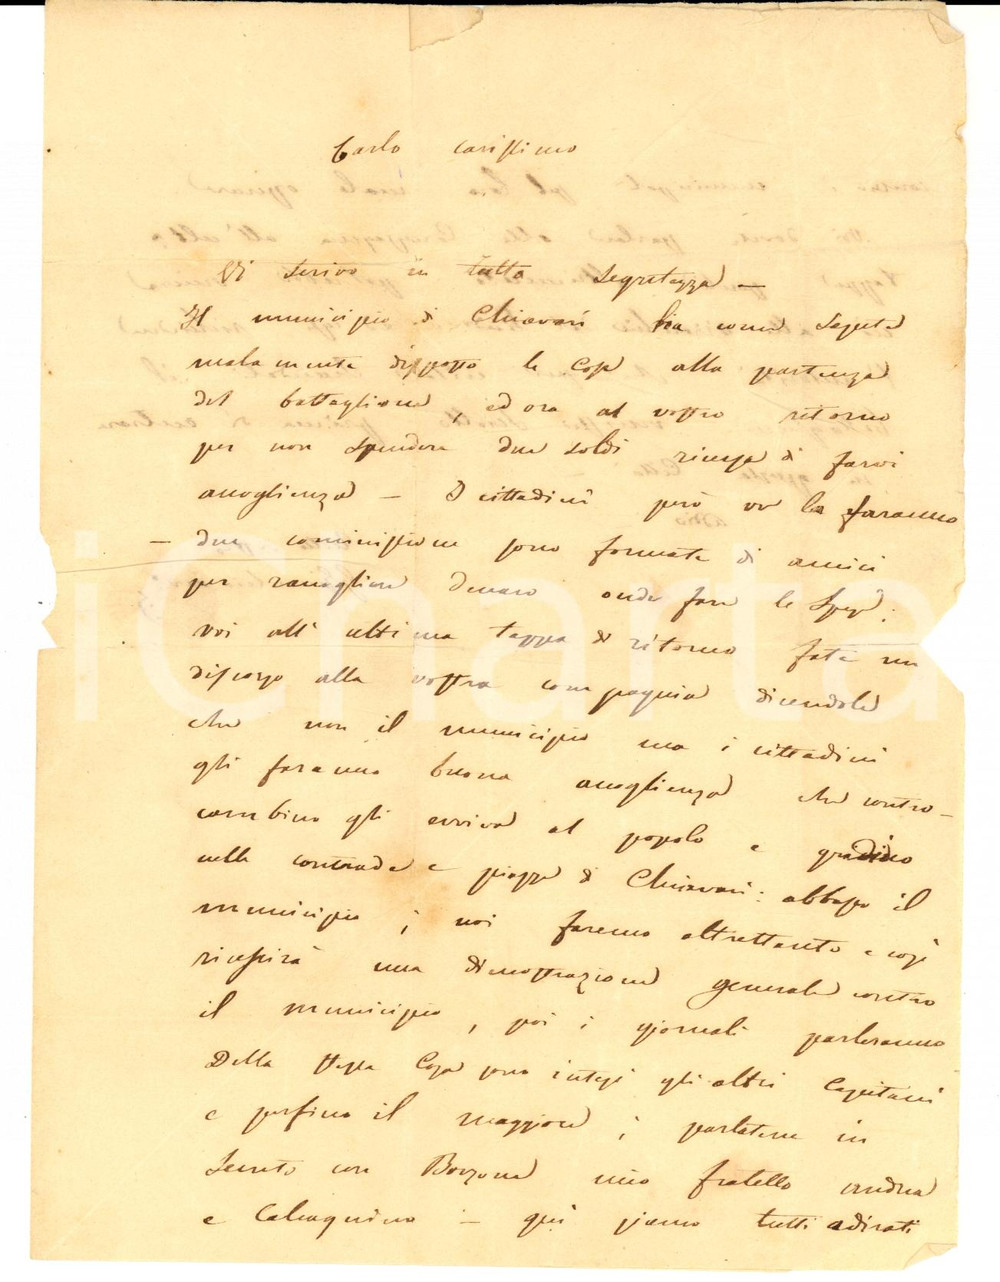 Carlo carissimo
Vi scrivo in tutta segretezza —
Il municipio di Chiavari ha come sapete
malamente disposto le cose alla partenza
del battaglione, ed ora al vostro ritorno
per non spendere due soldi ricusa di farvi
accoglienza — I cittadini però ve la faranno
— due commissioni sono formate di amici
per raccogliere denaro onde fare le spese;
voi all'ultima tappa di ritorno fate un
discorso alla vostra compagnia dicendole
che non il municipio ma i cittadini
gli faranno buona accoglienza che contro-
cambino gli evviva al popolo e gridino
nelle contrade e piazze di Chiavari: abbasso il
municipio; noi faremo altrettanto e così
riuscirà una dimostrazione generale contro
il municipio, poi i giornali parleranno
Della stessa cosa sono intesi gli altri Capitani
e perfino il maggiore; parlatene in
secreto con Borzone mio fratello Andrea
e Calcagnino — qui siamo tutti adirati
iCharta